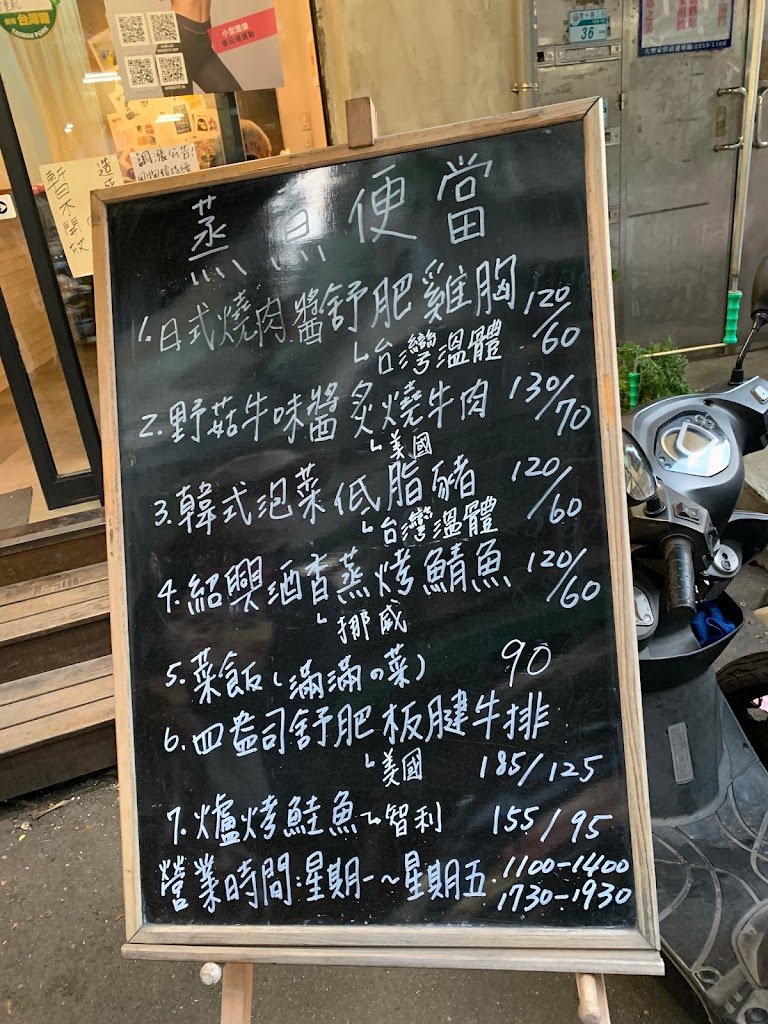 台灣豬
TAIWAN PORK
小型團課
36
暫不開放
調漲公告
蒸煮便當
1.日式燒肉醬舒肥雞胸 120/60
台灣溫體
2.野菇牛味醬炙燒牛肉 130/70
美國
3.韓式泡菜低脂豬 120/60
台灣溫體
4.紹興酒香蒸烤鯖魚 120/60
挪威
5.菜飯(滿滿の菜) 90
6.四益司舒肥板腱牛排
美國 185/125
7.爐烤鮭魚 智利 155/95
營業時間:星期一~星期五 1100-1400
1730-1930